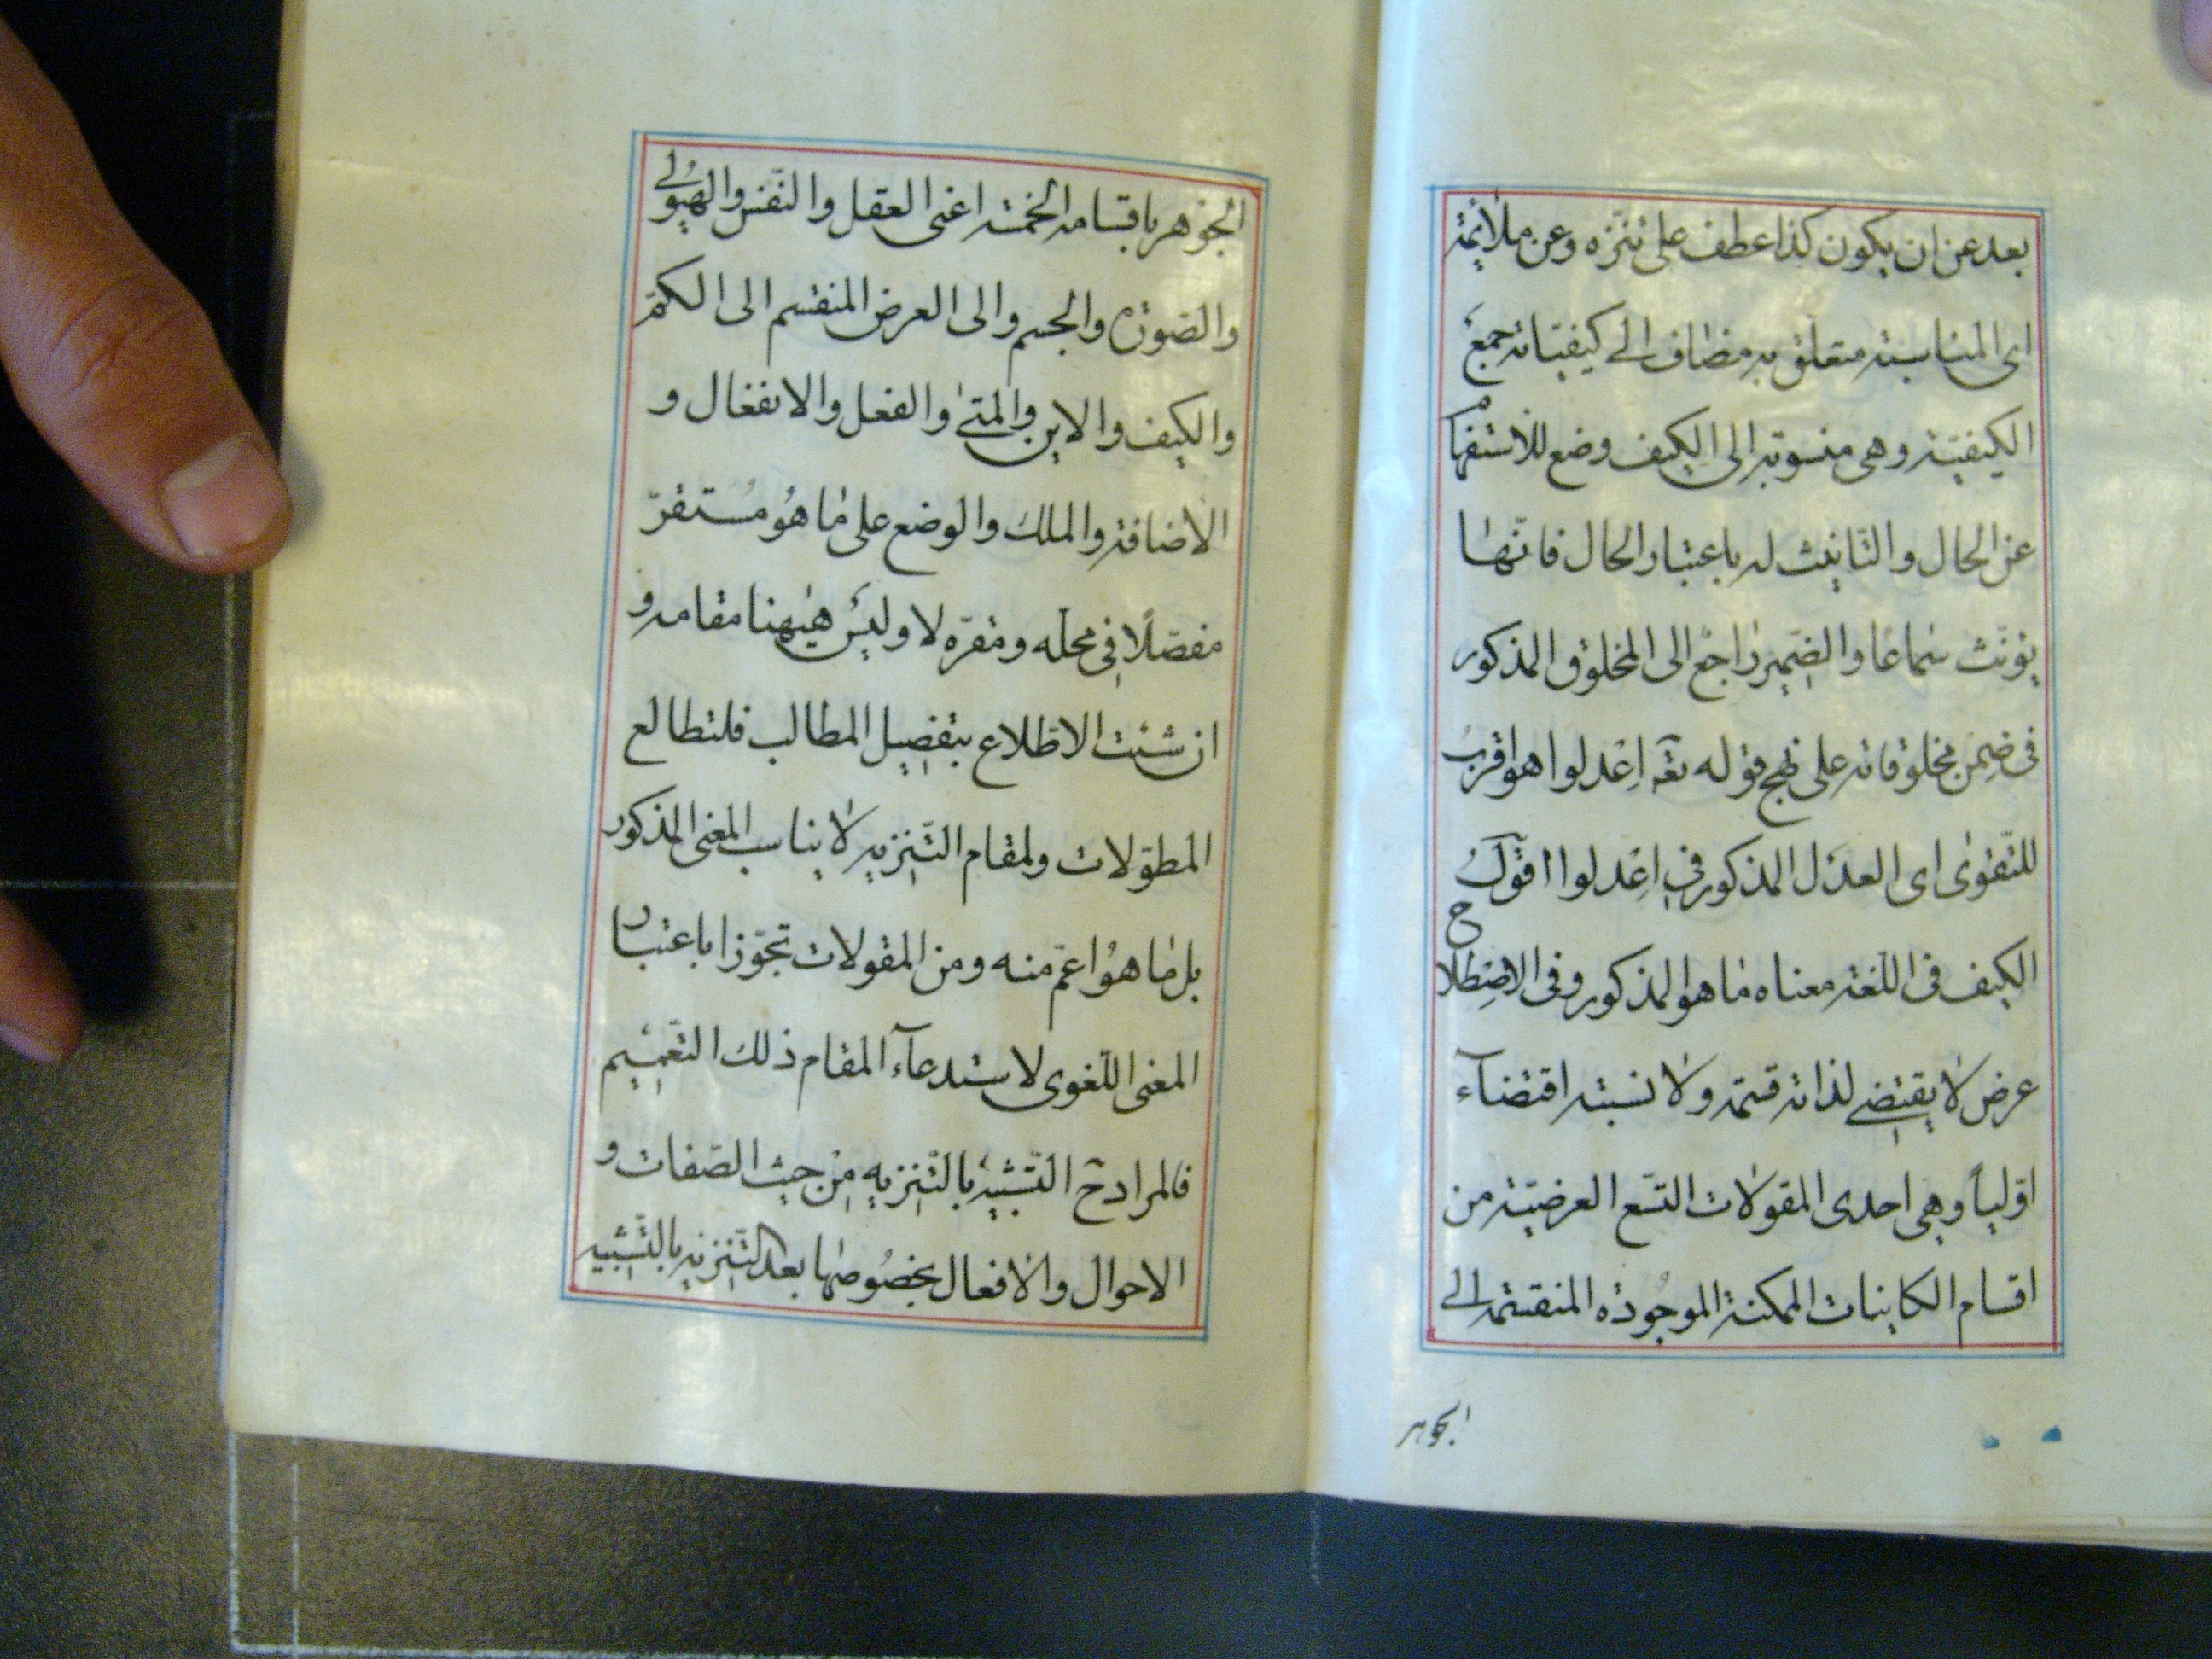 بعد عن ان يكون كذا عطف على تنزّه وعن ملائمة
اى المناسبة متعلق به مضاف الى كيفيّاته جمع
الكيفيّة وهى منسوبة الى الكيف وضع للاستفهام
عن الحال والتّانيث له باعتبار الحال فانّها
يؤنّث سماعًا والضّمير راجع الى المخلوق المذكور
فى ضمن مخلوقاته على نهج قوله تعالى اِعْدلوا هو اقربُ
للتّقوىٰ اى العدل المذكور فى اِعْدلوا اقولُ
الكيف فى اللّغة معناه ما هو المذكور وفى الاصطلاح
عرض لا يقتضى لذاته قسمة ولا نسبة اقتضآء
اوّلياً وهى احدى المقولات التّسع العرضيّة من
اقسام الكاينات الممكنة الموجُودة المنقسمة الى
الجوهر
الجوهر باقسامه الخمسة اعنى العقل والنّفس والهيُولى
والصّورة والجسم والى العرض المنقسم الى الكمّ
والكيف والاين والمتىٰ والفعل والانفعال و
الاضافة والملك والوضع على ما هُو مُستقرّ
مفصّلًا فى محله ومقرّه لا وليس هيٰهنا مقامه و
ان شئت الاطّلاع بتفصيل المطالب فلتطالع
المطوّلات ولمقام التّنزيه لا يناسب المعنى المذكور
بل ما هُو اعمّ منه ومن المقولات تجوّزا باعتبار
المعنى اللّغوى لاستدعآء المقام ذلك التّعميم
فالمراد ح التّشبيه بالتّنزيه من حيث الصّفات و
الاحوال والافعال بخصُوصها بعد التّنزيه بالتّشبيه